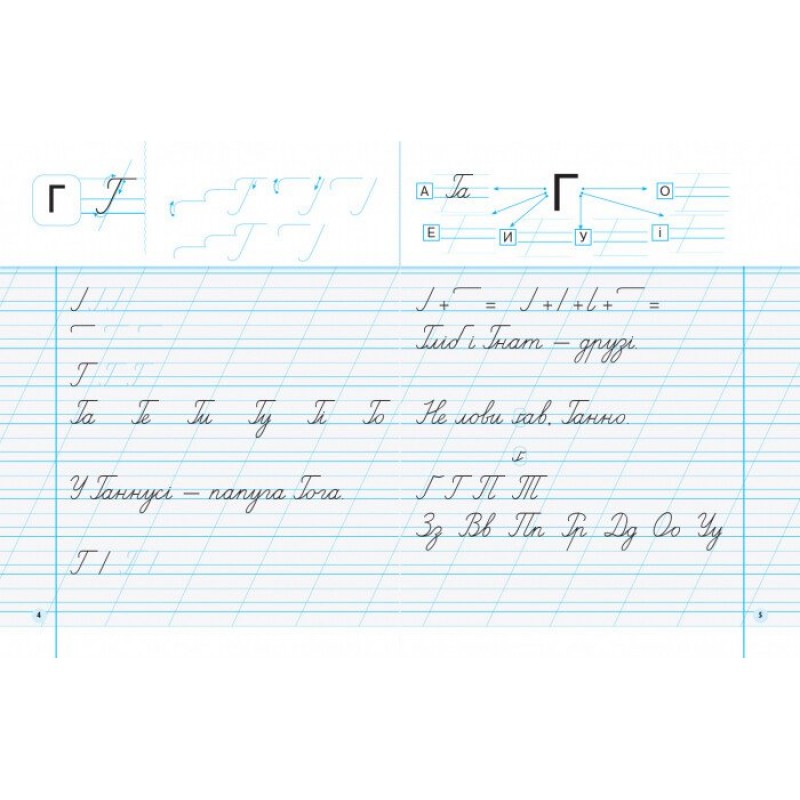 Г Г
Га Ге Ги Гу Гі Го
У Ганнусі — папуга Гога.
Г
4
А Га Г О
Е И У і
+ = + + + =
Гліб і Гнат — друзі.
Не лови ґав, Ганно.
ґ
П Т
Зз Вв Пп Рр Дд Оо Уу
5